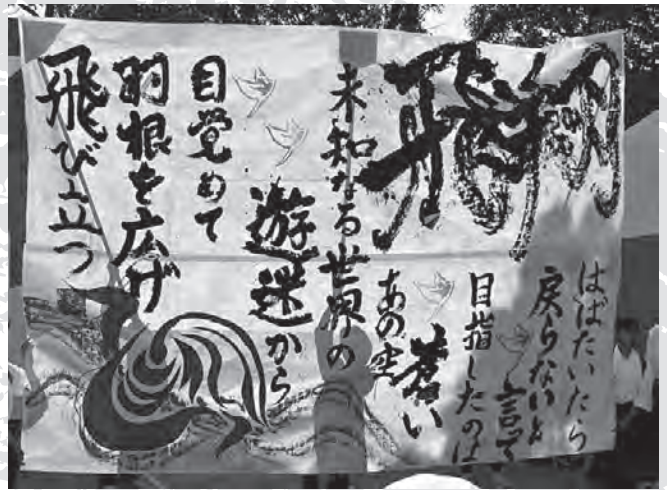 飛翔
はばたいたら
戻らないと
言って
目指したのは
蒼い
あの空
未知なる世界の
遊迷から
目覚めて
羽根を広げ
飛び立つ